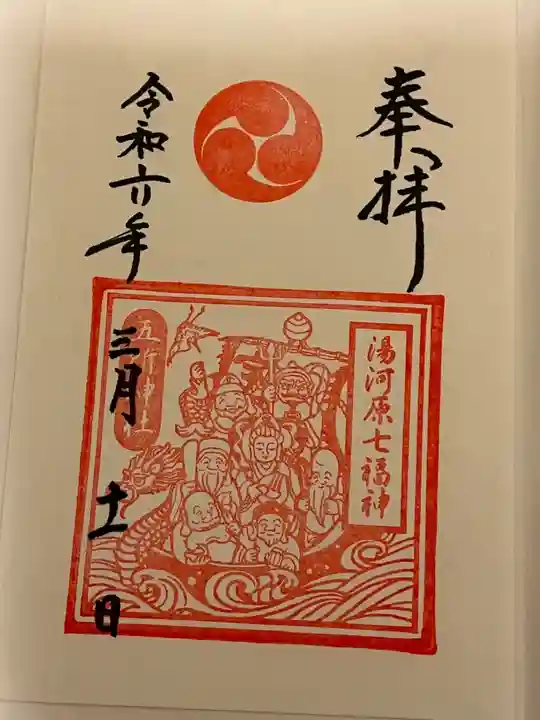 奉拝
湯河原七福神
五所神社
令和六年
三月十一日